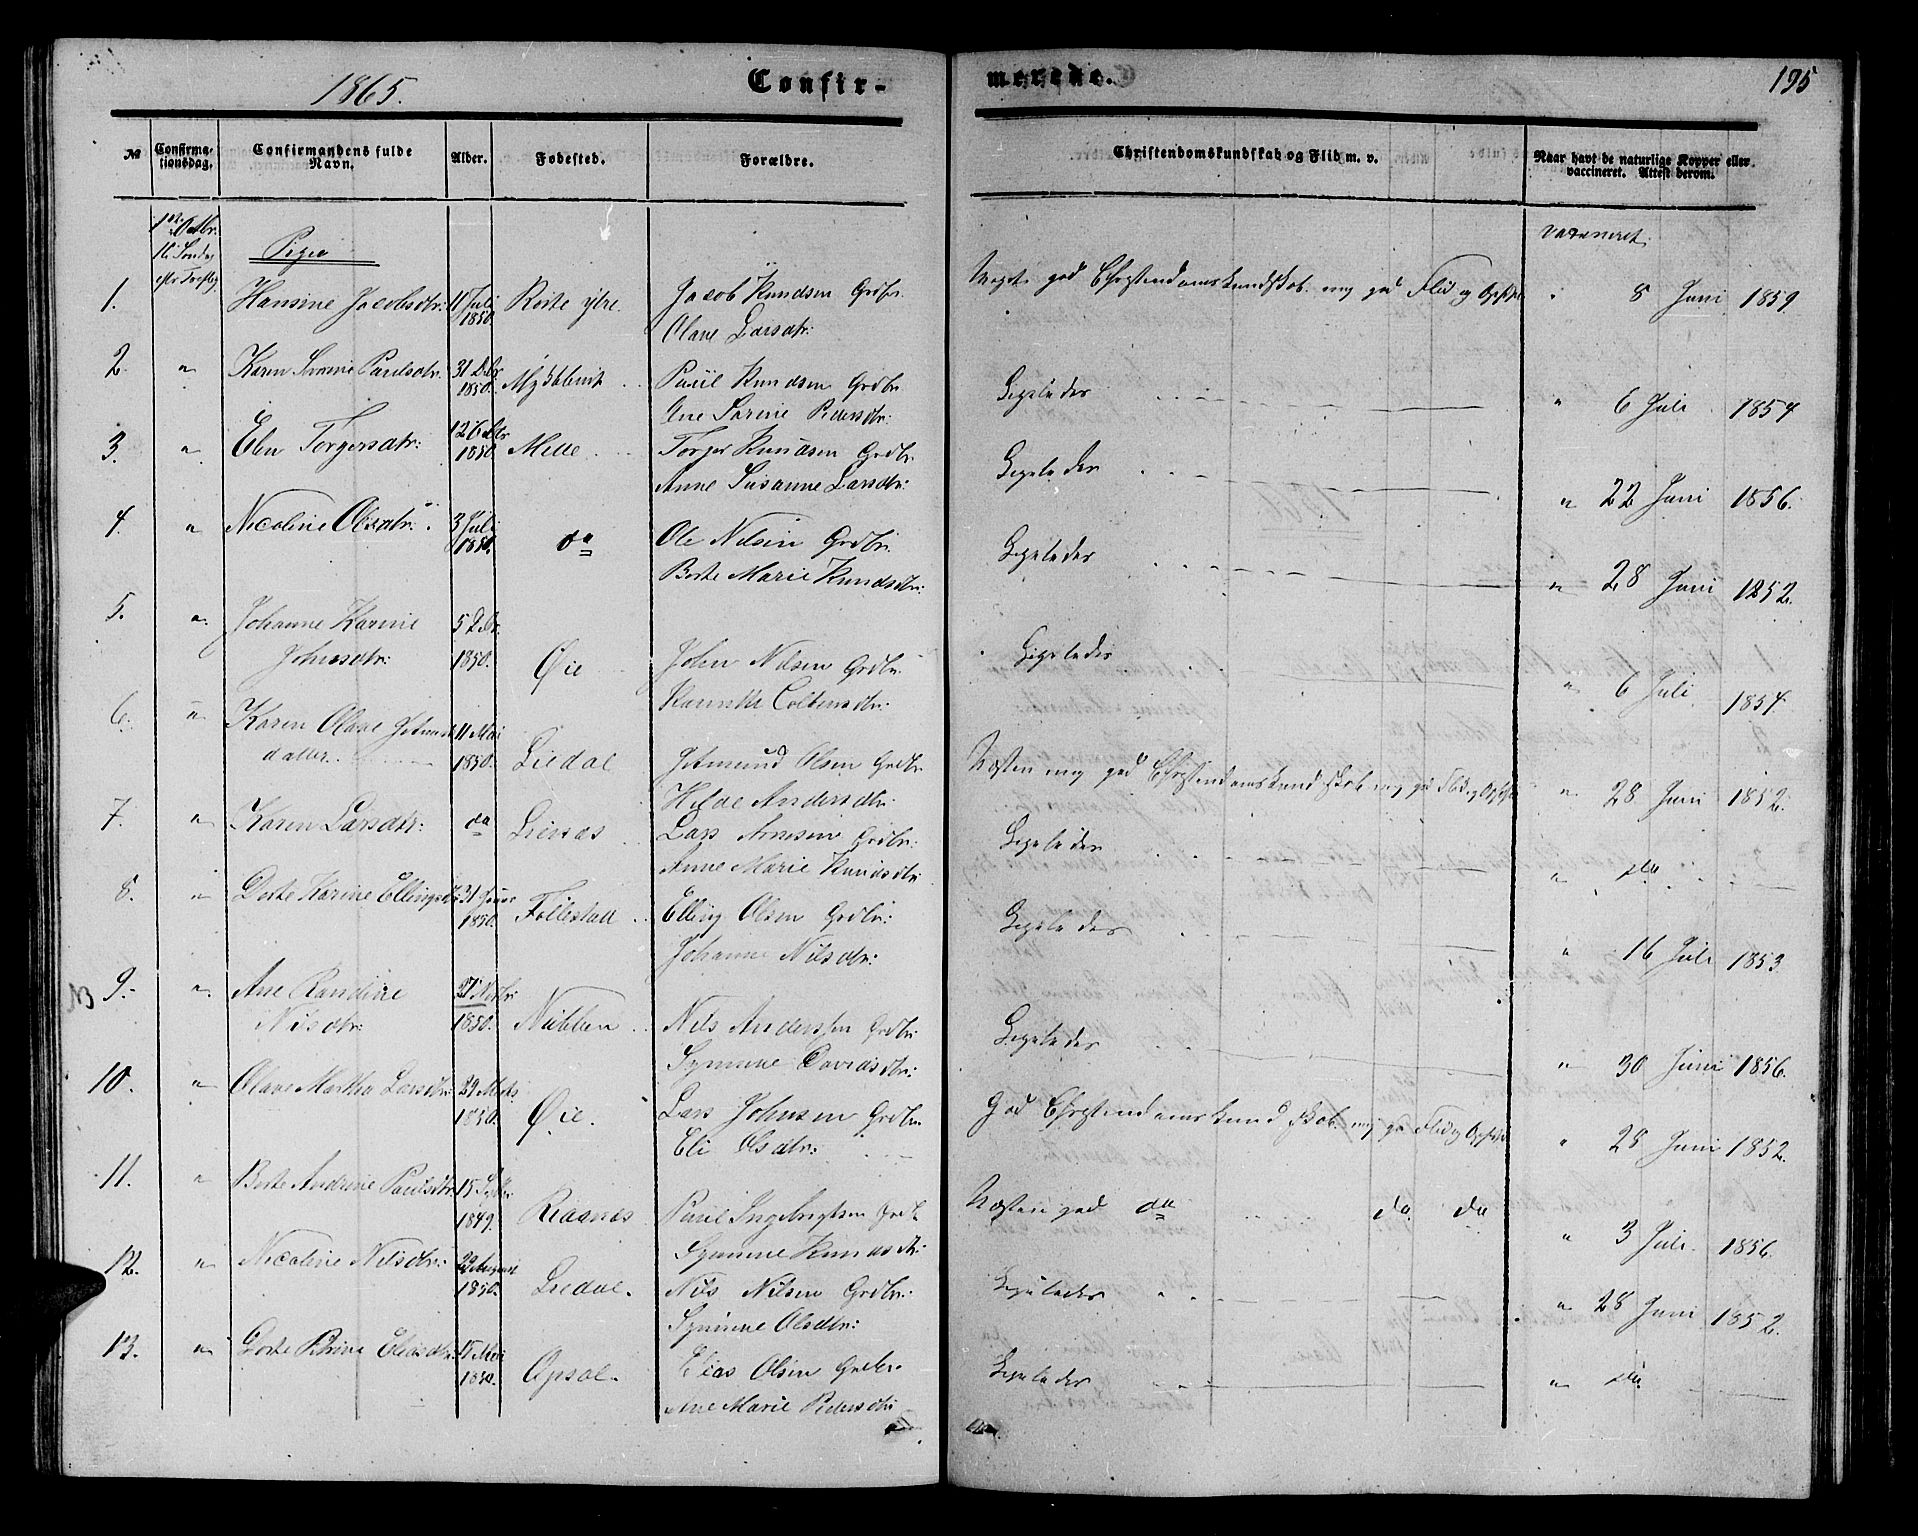 1865.
Confir-
merede.
195
№
Confirma-
tionsdag.
Confirmandens fulde
Navn.
Alder.
Fødested.
Forældre.
Christendomskundskab og Flid m. v.
Naar havt de naturlige Kopper eller
vaccineret. Attest derom.
1ste Octbr.
16 Søndag
eftr Treftig
Piger
vaccineret.
1. Hansine Jacobsdtr: 11 Juli Roite ytre. Jacob Knudsen Grdbr.
1850.
Olave Larsdtr:
Meget god Christendomskundskab. mg god Flid og Opfs. " 8 Juni 1859
2. " Karen Paulsdtr. 31 Dcbr Myklebust Paul Knudsen Grdbr
1850.
Ane Sarine Pedersdtr:
Ligeledes " 6 Juli 1854.
3. " Elen Torgersdtr: 12 Dcbr Melle Torger Knudsen Grdbr
1850
Anne Susanne Larsdtr:
Ligeledes " 22 Juni 1856.
4. " Nicoline Olsdtr: 3 Juli do Ole Nilsen Grdbr.
1850.
Berte Marie Knudsdtr:
Ligeledes " 28 Juni 1852.
5. " Johanne Karine 5 Dcbr.
Johnsdtr: 1850. Øie John Nilsen Grdbr.
Coltensdtr:
Ligeledes " 6 Juli 1854.
6. " Karen Olave Jetmund 11 Mai
datter. 1850. Liedal Jetmund Olsen Grdbr
Hilde Andersdtr:
Næsten mg god Christendomskundskab. mg god Flid og Opfs " 28 Juni 1852.
7. " Karen Larsdtr: do Liesæs Lars Arnesen Grdbr:
Anne Marie Knudsdtr
Ligeledes " do
8. " Dorte Karine Ellingsdtr 31 Januar
1850. Follestad Elling Olsen Grdbr:
Johanne Nilsdtr:
Ligeledes " 16 Juli 1853
NB 9. " Ane Randine 27 Novbr:
Nilsdtr: 1850. Nubben Nils Anderssen Grdbr
Synnøve Davidsdtr:
Ligeledes " 30 Juni 1856.
10. " Olave Martha Larsdtr: 29 Marts
1850. Øie. Lars Johnsen Grdbr.
Eli Olsdtr:
God Christendomskundskab. mg god Flid og Opfs " 28 Juni 1852.
11. " Berte Andrine Paulsdtr. 15 Septbr
1849. Raanæs Paul Ingebrigtsen Grdb
Synnøve Knudsdtr:
Næsten god do do do " 3 Juli. 1856.
12. " Nicoline Nilsdtr: 29 August
1850. Liedal. Nils Nilsen Grdbr:
Synnøve Olsdtr:
Ligeledes " 28 Juni 1852.
13. " Dorte Petrine Eliasdtr. 15 Mai
1850. Opsal. Elias Olsen Grdbr.
Ane Marie Pedersdtr
Ligeledes " do